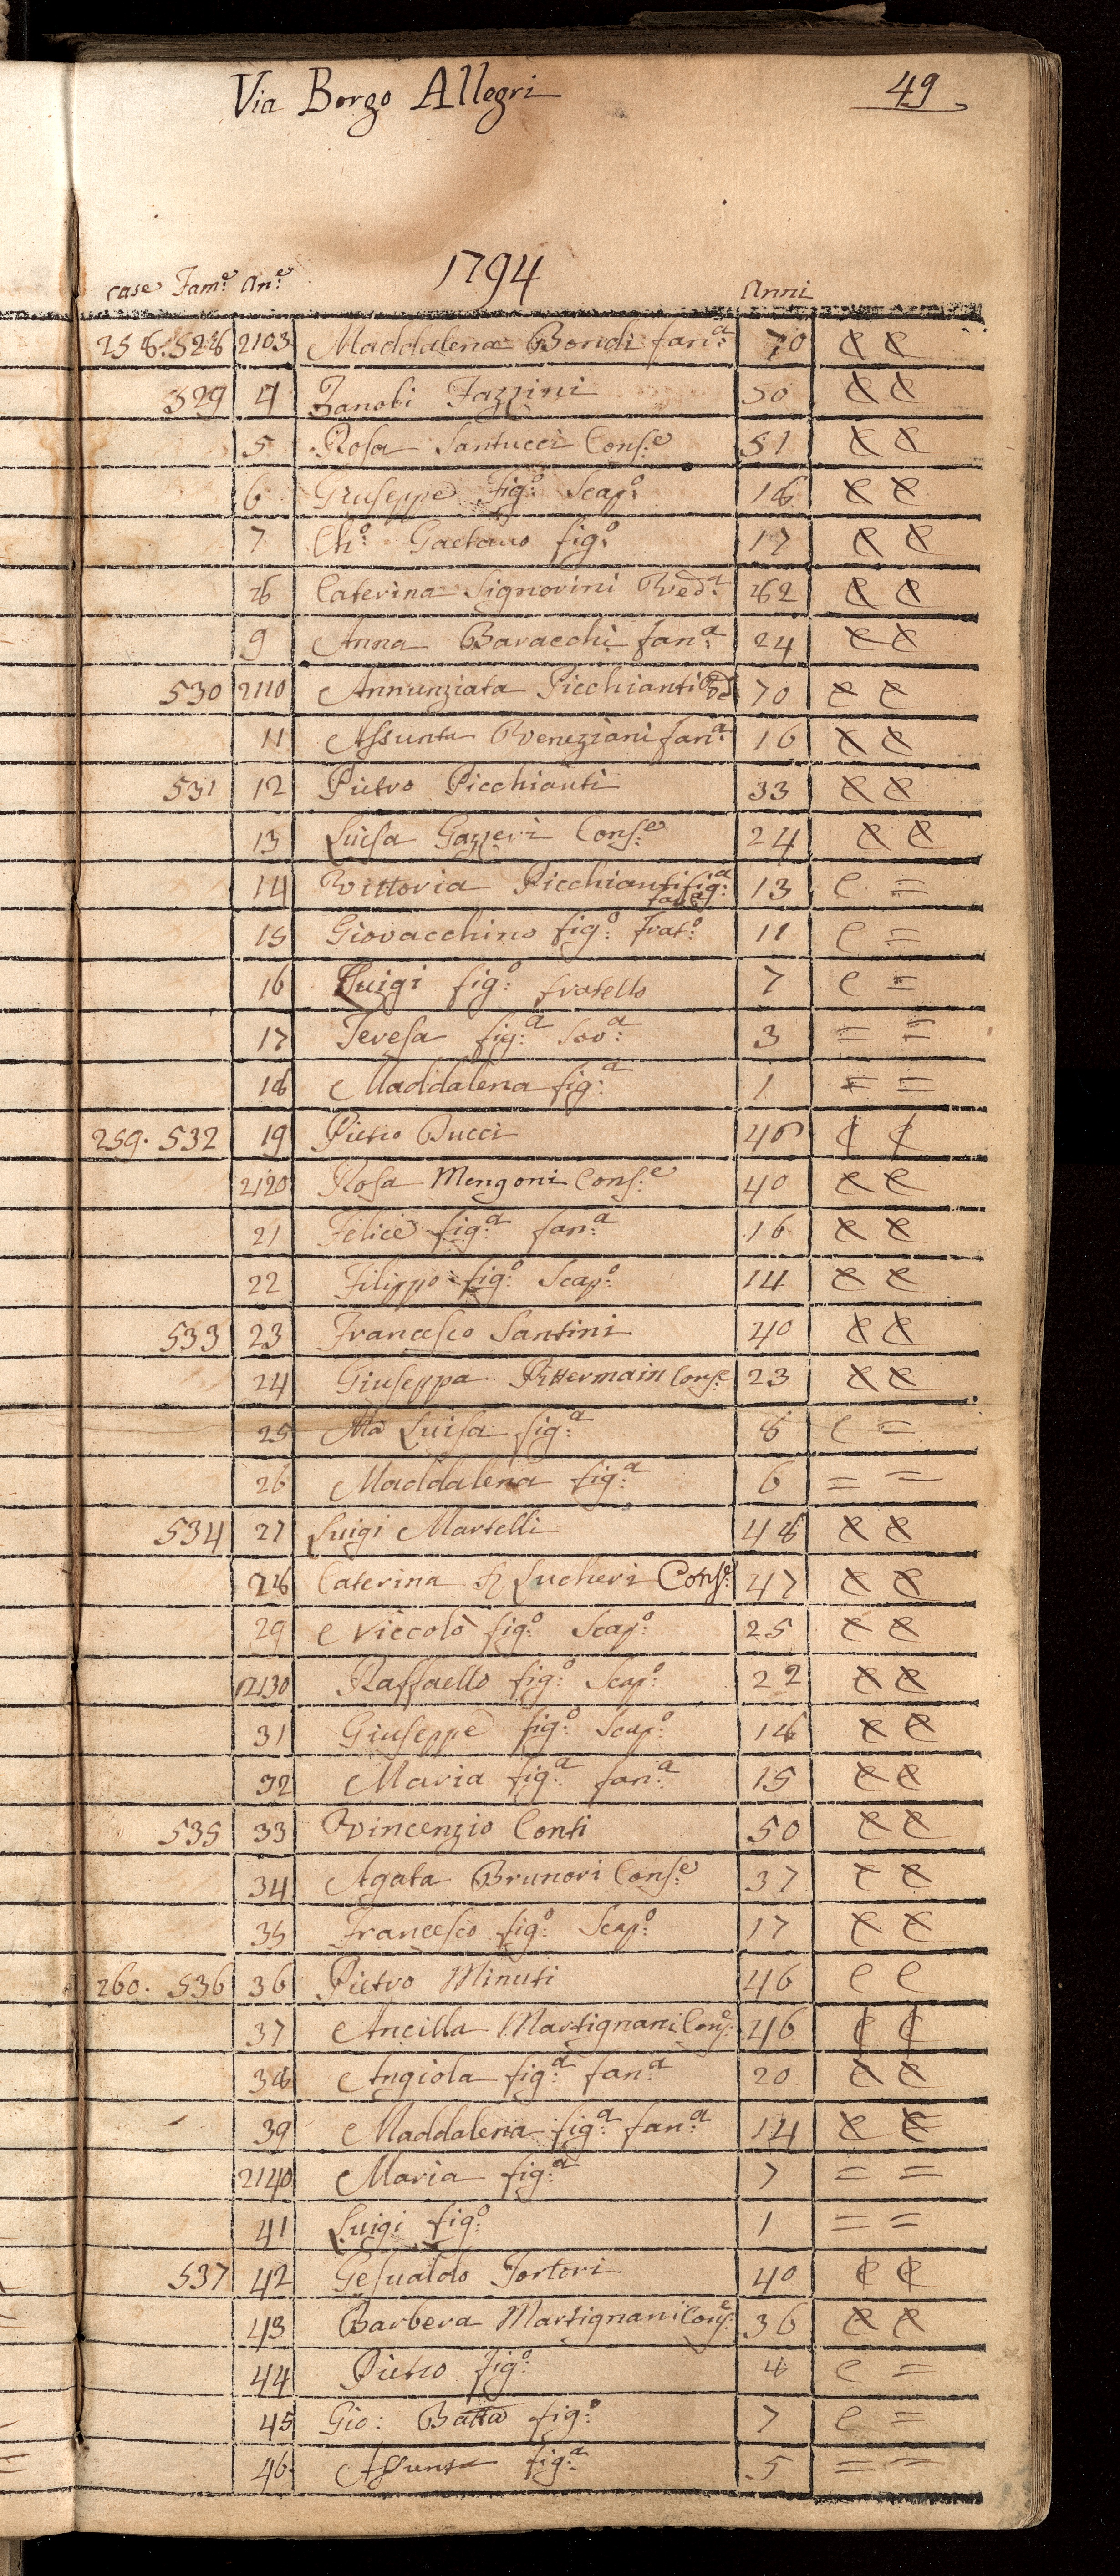 Via Borgo Allegri 49
1794
case Fam:e An:e Anni
258. 528 2103 Maddalena Bondi fan:a 70 e e
529 4 Zanobi Fazzini 50 e e
5 Rosa Santucci Cons:e 51 e e
6 Giuseppe fig:o Scap:o 18 e e
7 Ch:o Gaetano fig:o 17 e e
8 Caterina Signorini Ved:a 82 e e
9 Anna Baracchi fan:a 24 e e
530 2110 Annunziata Picchianti Ved:a 70 e e
11 Assunta Veneziani fan:a 16 e e
531 12 Pietro Picchianti 33 e e
13 Luisa Gazzeri Cons:e 24 e e
14 Vittoria Picchianti fig:a 13 e =
15 Giovacchino fig:o Frat:o 11 e =
16 Luigi fig:o fratello 7 e =
17 Teresa fig:a Sor:a 3 = =
18 Maddalena fig:a 1 = =
259. 532 19 Pietro Bucci e e
2120 Rosa Mengoni Cons:e 40 e e
21 Felice fig:a fan:a 16 e e
22 Filippo fig:o Scap:o 14 e e
533 23 Francesco Santini 40 e e
24 Giuseppa Cons:e 23 e e
25 Ma Luisa fig:a 8 e =
26 Maddalena fig:a 6 = =
534 27 Luigi Martelli 48 e e
28 Caterina Cons:e 47 e e
29 Niccolò fig:o Scap:o 25 e e
2130 Raffaello fig:o Scap:o 22 e e
31 Giuseppe fig:o Scap:o 18 e e
32 Maria fig:a fan:a 15 e e
535 33 Vincenzio Conti 50 e e
34 Agata Brunori Cons:e 37 e e
35 Francesco fig:o Scap:o 17 e e
260. 536 36 Pietro Minuti 46 e e
37 Ancilla Martignani Cons:e 46 e e
38 Angiola fig:a fan:a 20 e e
39 Maddalena fig:a fan:a 14 e e
2140 Maria fig:a 7 = =
41 Luigi fig:o 1 = =
537 42 Gesualdo Tortori 40 e e
43 Barbera Martignani Cons:e 36 e e
44 Pietro fig:o e =
45 Gio: Batta fig:o 7 e =
46 Assunta fig:a 5 = =